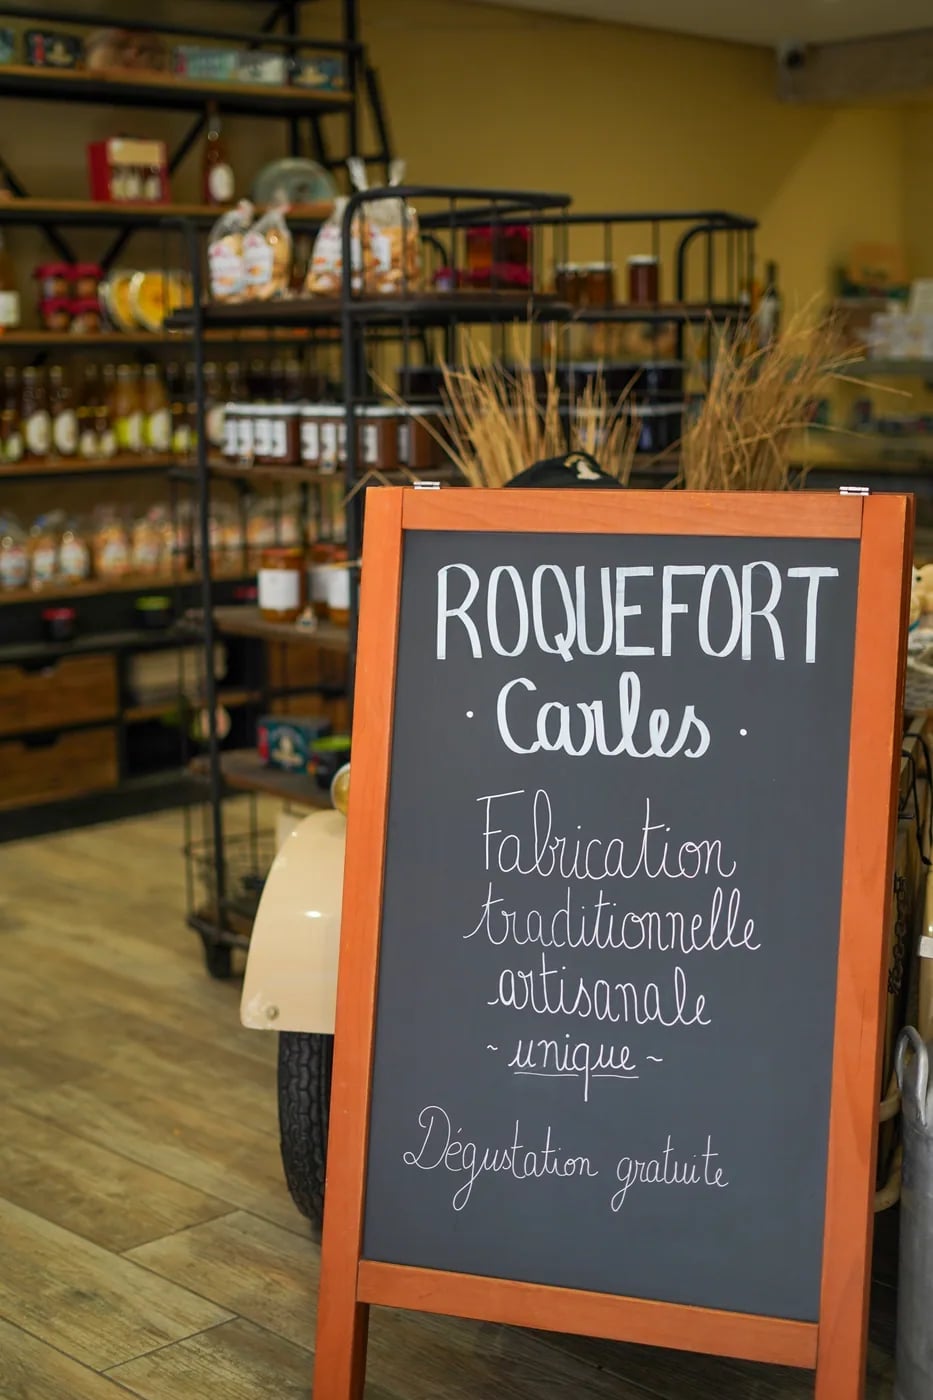 ROQUEFORT
· Carles ·
Fabrication
traditionnelle
artisanale
~ unique ~
Dégustation gratuite